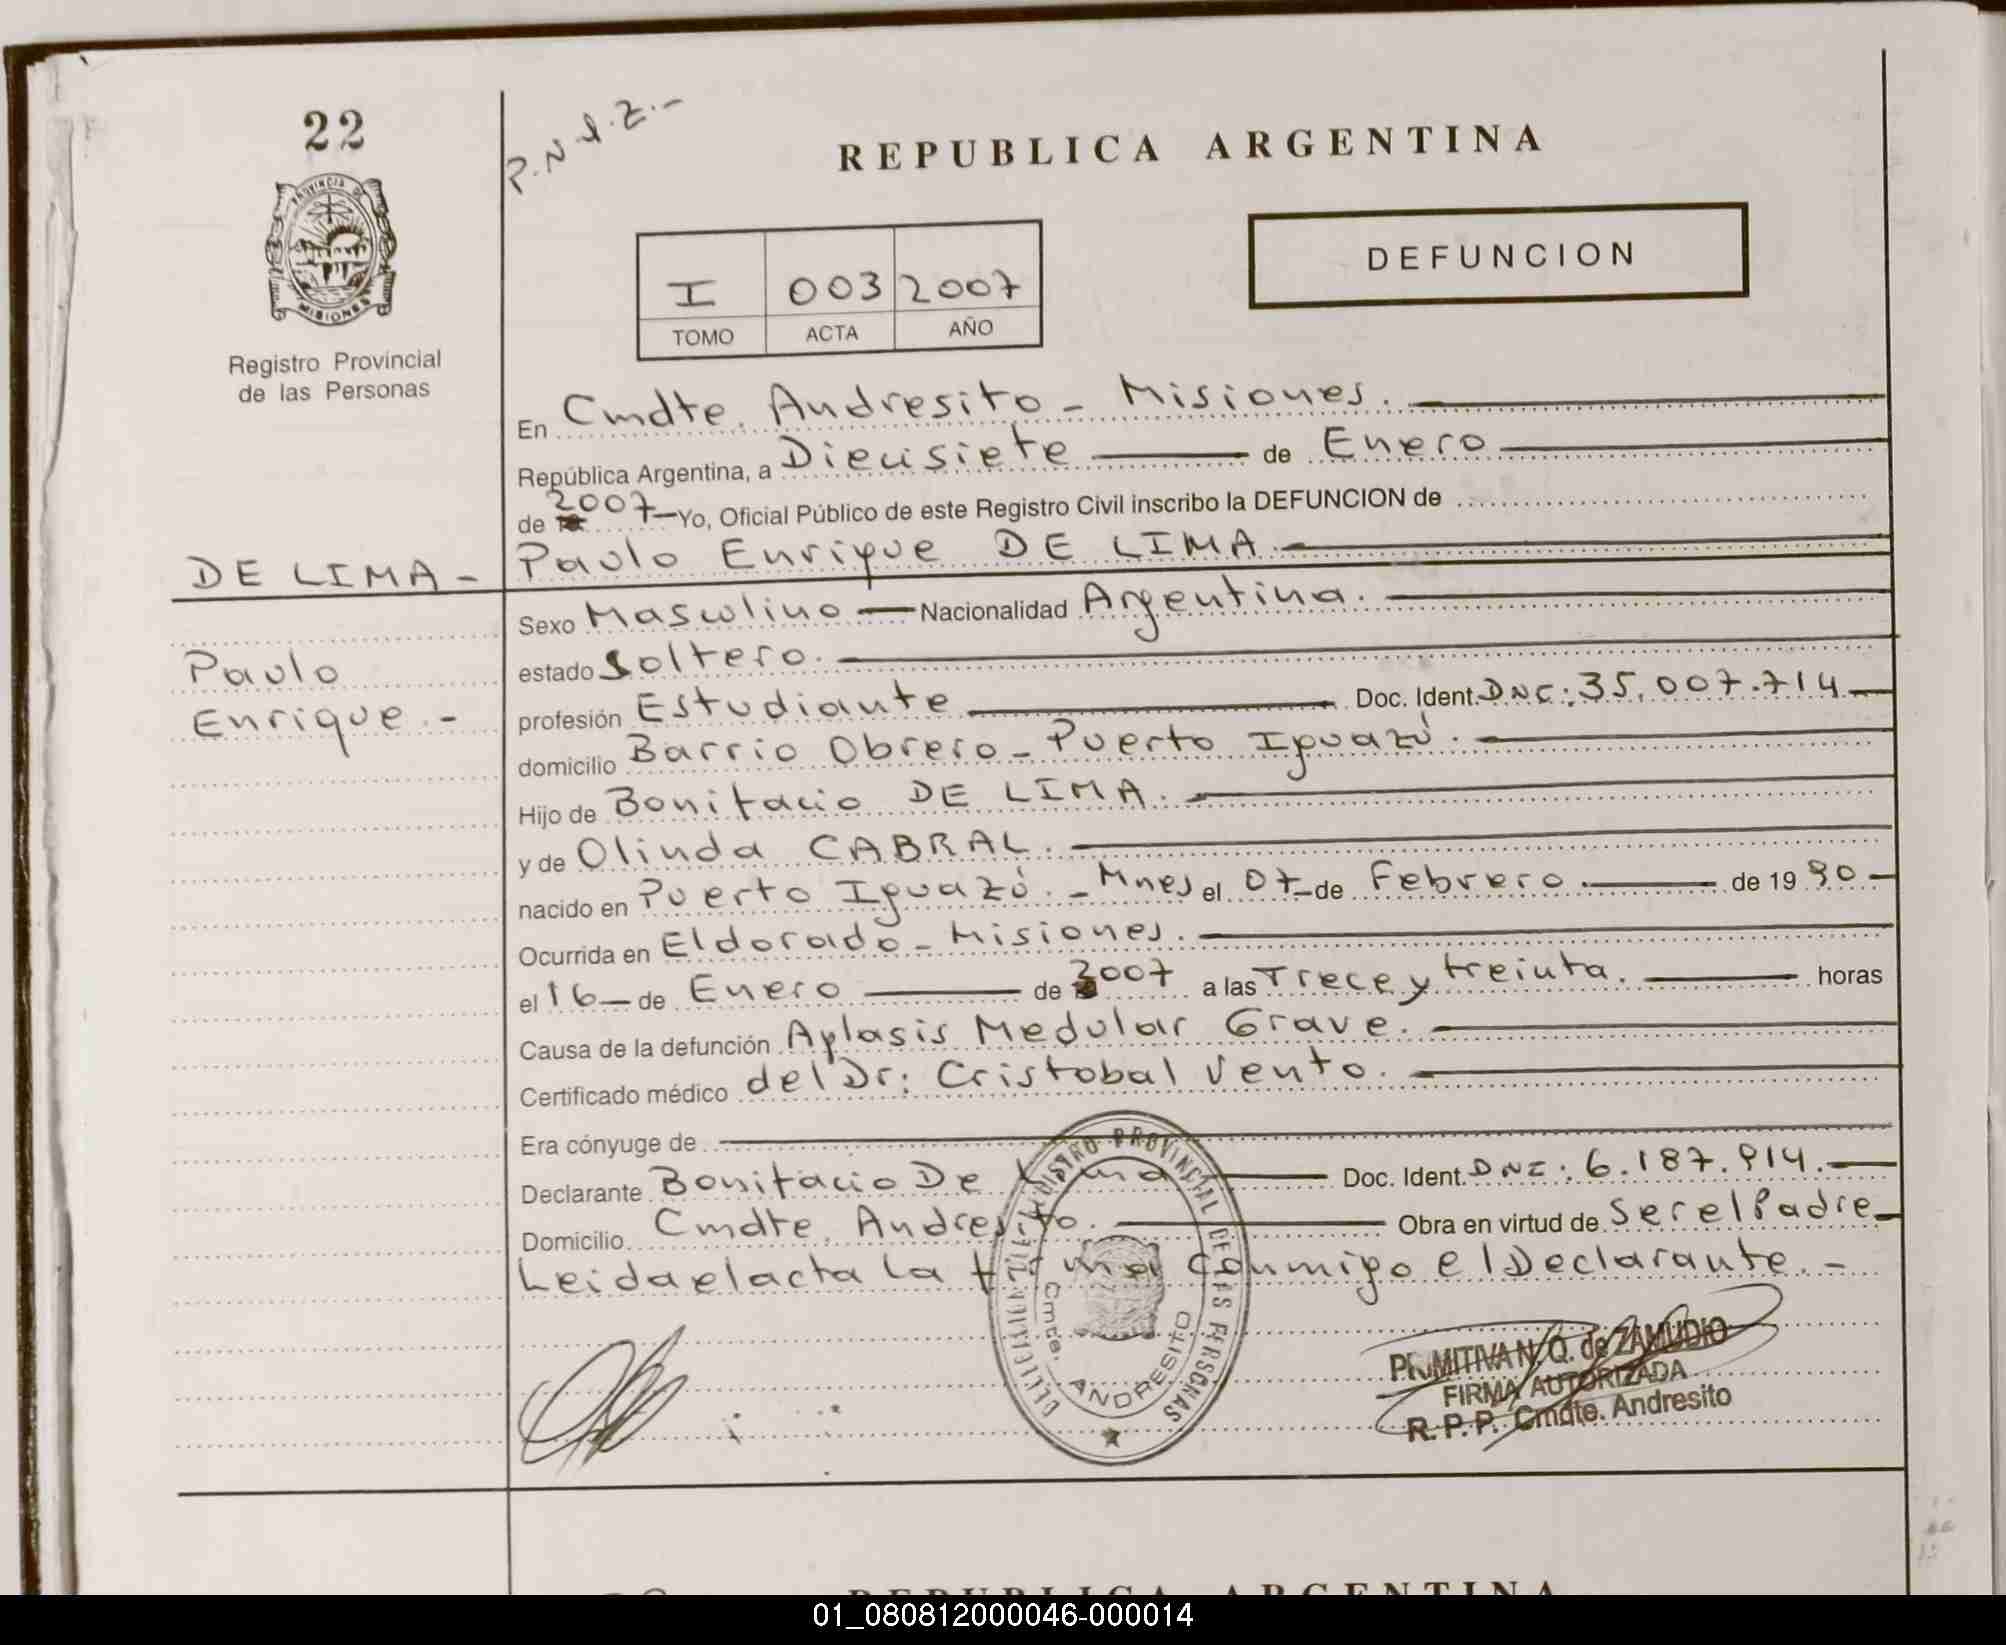 22
P.N.I.Z.-
REPUBLICA ARGENTINA
PROVINCIA DE
MISIONES
DEFUNCION
I 003 2007
TOMO ACTA AÑO
Registro Provincial
de las Personas
En Cmdte. Andresito - Misiones.
República Argentina, a Diecisiete de Enero
de 2007 Yo, Oficial Público de este Registro Civil inscribo la DEFUNCION de
DE LIMA - Paulo Enrique DE LIMA
Sexo Masculino Nacionalidad Argentina.
Paulo
Enrique.-
estado Soltero.
profesión Estudiante Doc. Ident. DNI: 35.007.714
domicilio Barrio Obrero - Puerto Iguazú.
Hijo de Bonifacio DE LIMA.
y de Olinda CABRAL.
nacido en Puerto Iguazú. - Mnes el 07 de Febrero de 1990
Ocurrida en Eldorado - Misiones.
el 16 de Enero de 2007 a las Trece y treinta. horas
Causa de la defunción Aplasis Medular Grave.
Certificado médico del Dr: Cristobal Vento.
Era cónyuge de
Declarante Bonifacio De Lima Doc. Ident. DNI: 6.187.914.
Domicilio Cmdte. Andresito. Obra en virtud de Ser el Padre
Leida el acta la firma conmigo el Declarante.-
REGISTRO PROVINCIAL DE LAS PERSONAS
Cmte. ANDRESITO
PRIMITIVA N. Q. de ZAMUDIO
FIRMA AUTORIZADA
R. P. P. Cmdte. Andresito
REPUBLICA ARGENTINA
01_080812000046-000014